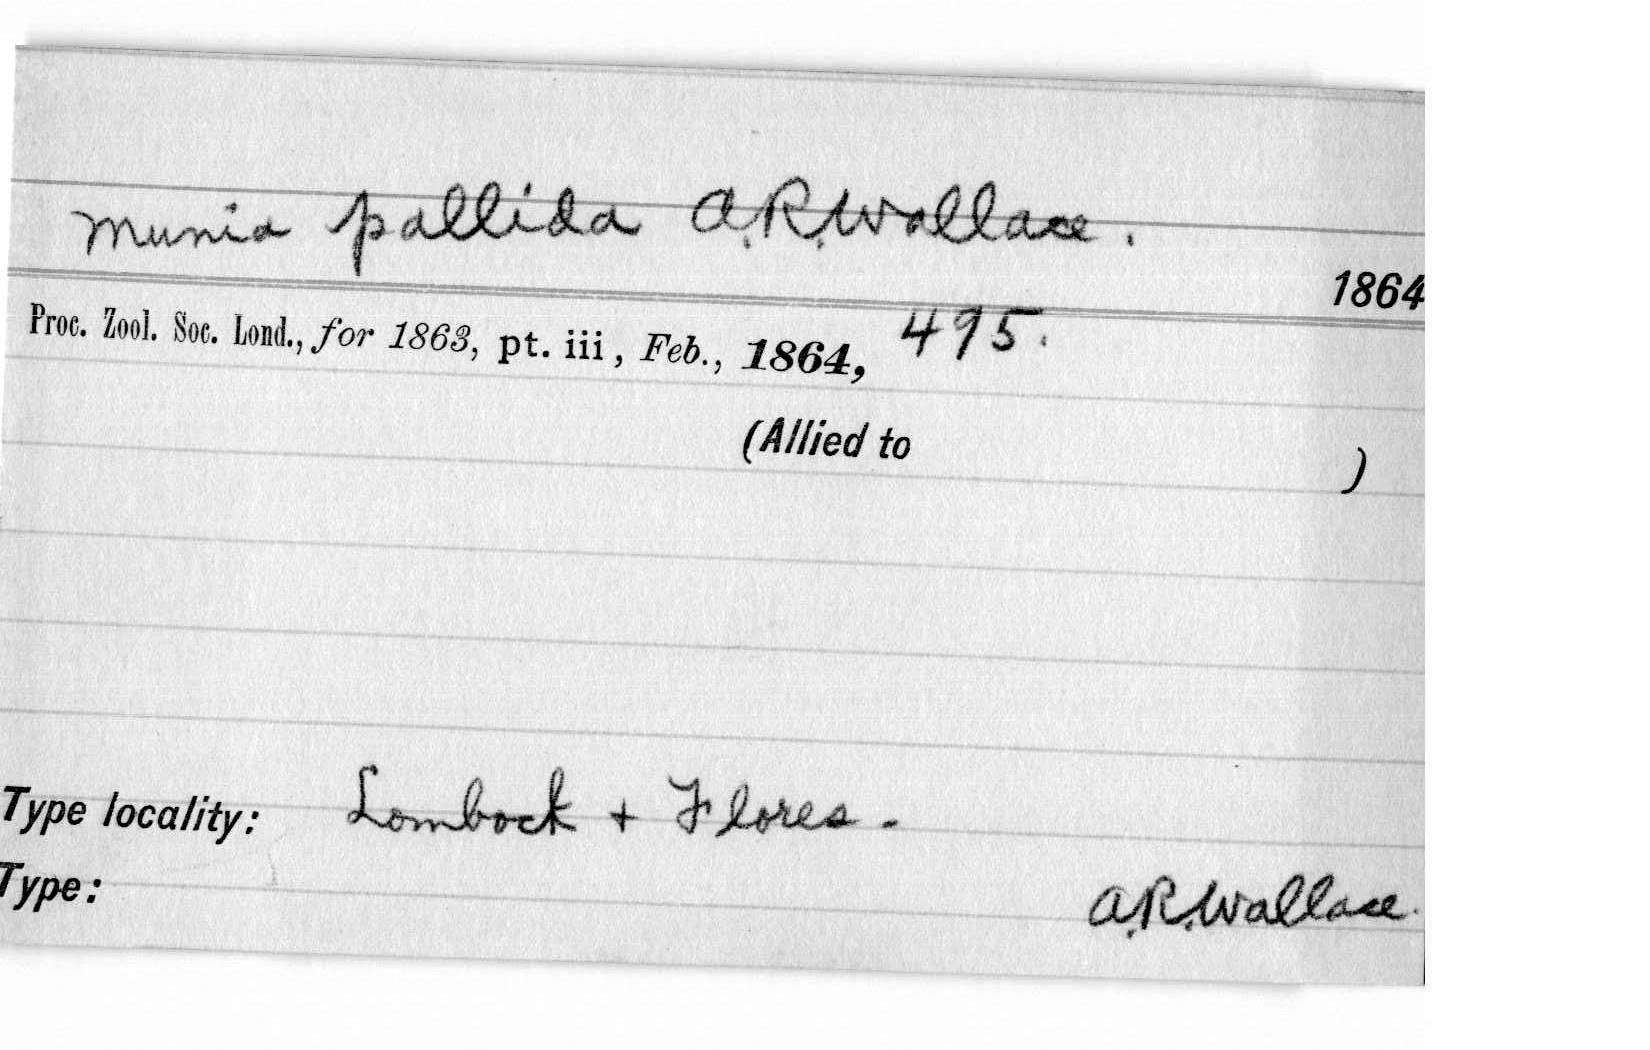 Munia pallida A.R.Wallace.
1864
Proc. Zool. Soc. Lond., for 1863, pt. iii, Feb., 1864, 495.
(Allied to )
Type locality: Lombock + Flores.
Type: A.R.Wallace.